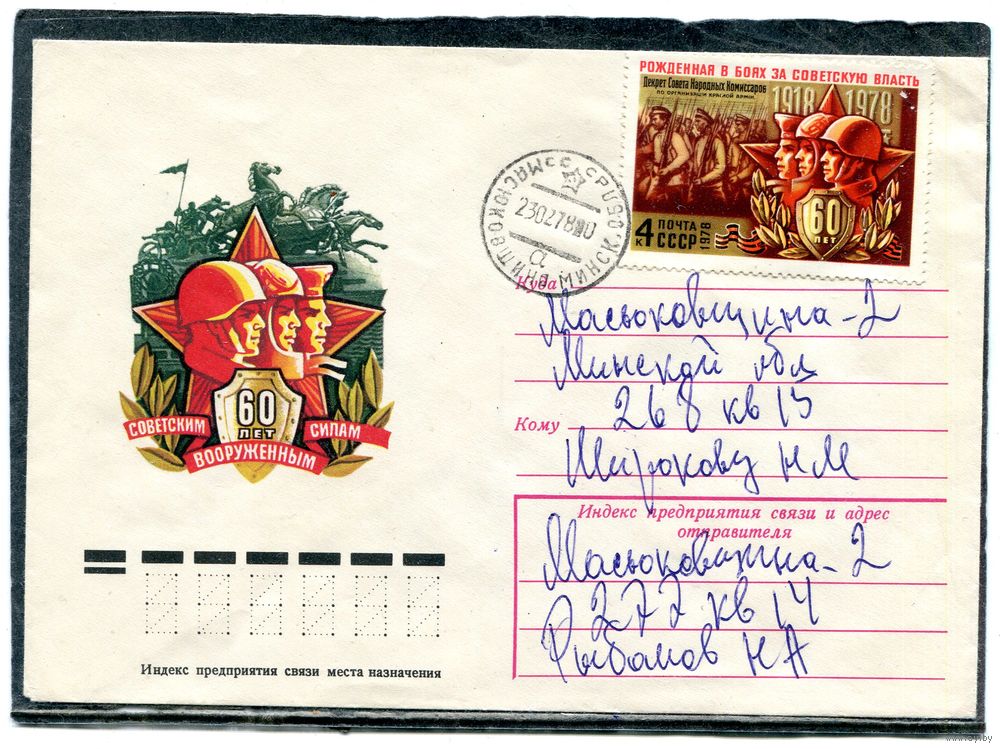 РОЖДЕННАЯ В БОЯХ ЗА СОВЕТСКУЮ ВЛАСТЬ
Декрет Совета Народных Комиссаров
ПО ОРГАНИЗАЦИИ КРАСНОЙ АРМИИ
1918 1978
60
ЛЕТ
4 К
ПОЧТА
СССР
1978
МАСЮКОВЩИНА МИНСК. ОБЛ.
23027820
а
60
ЛЕТ
СОВЕТСКИМ
ВООРУЖЕННЫМ
СИЛАМ
Куда
Масюковщина-2
Минской обл
268 кв 13
Кому
Широкову НМ
Индекс предприятия связи и адрес
отправителя
Масюковщина-2
277 кв 14
Рыбаков НА
Индекс предприятия связи места назначения